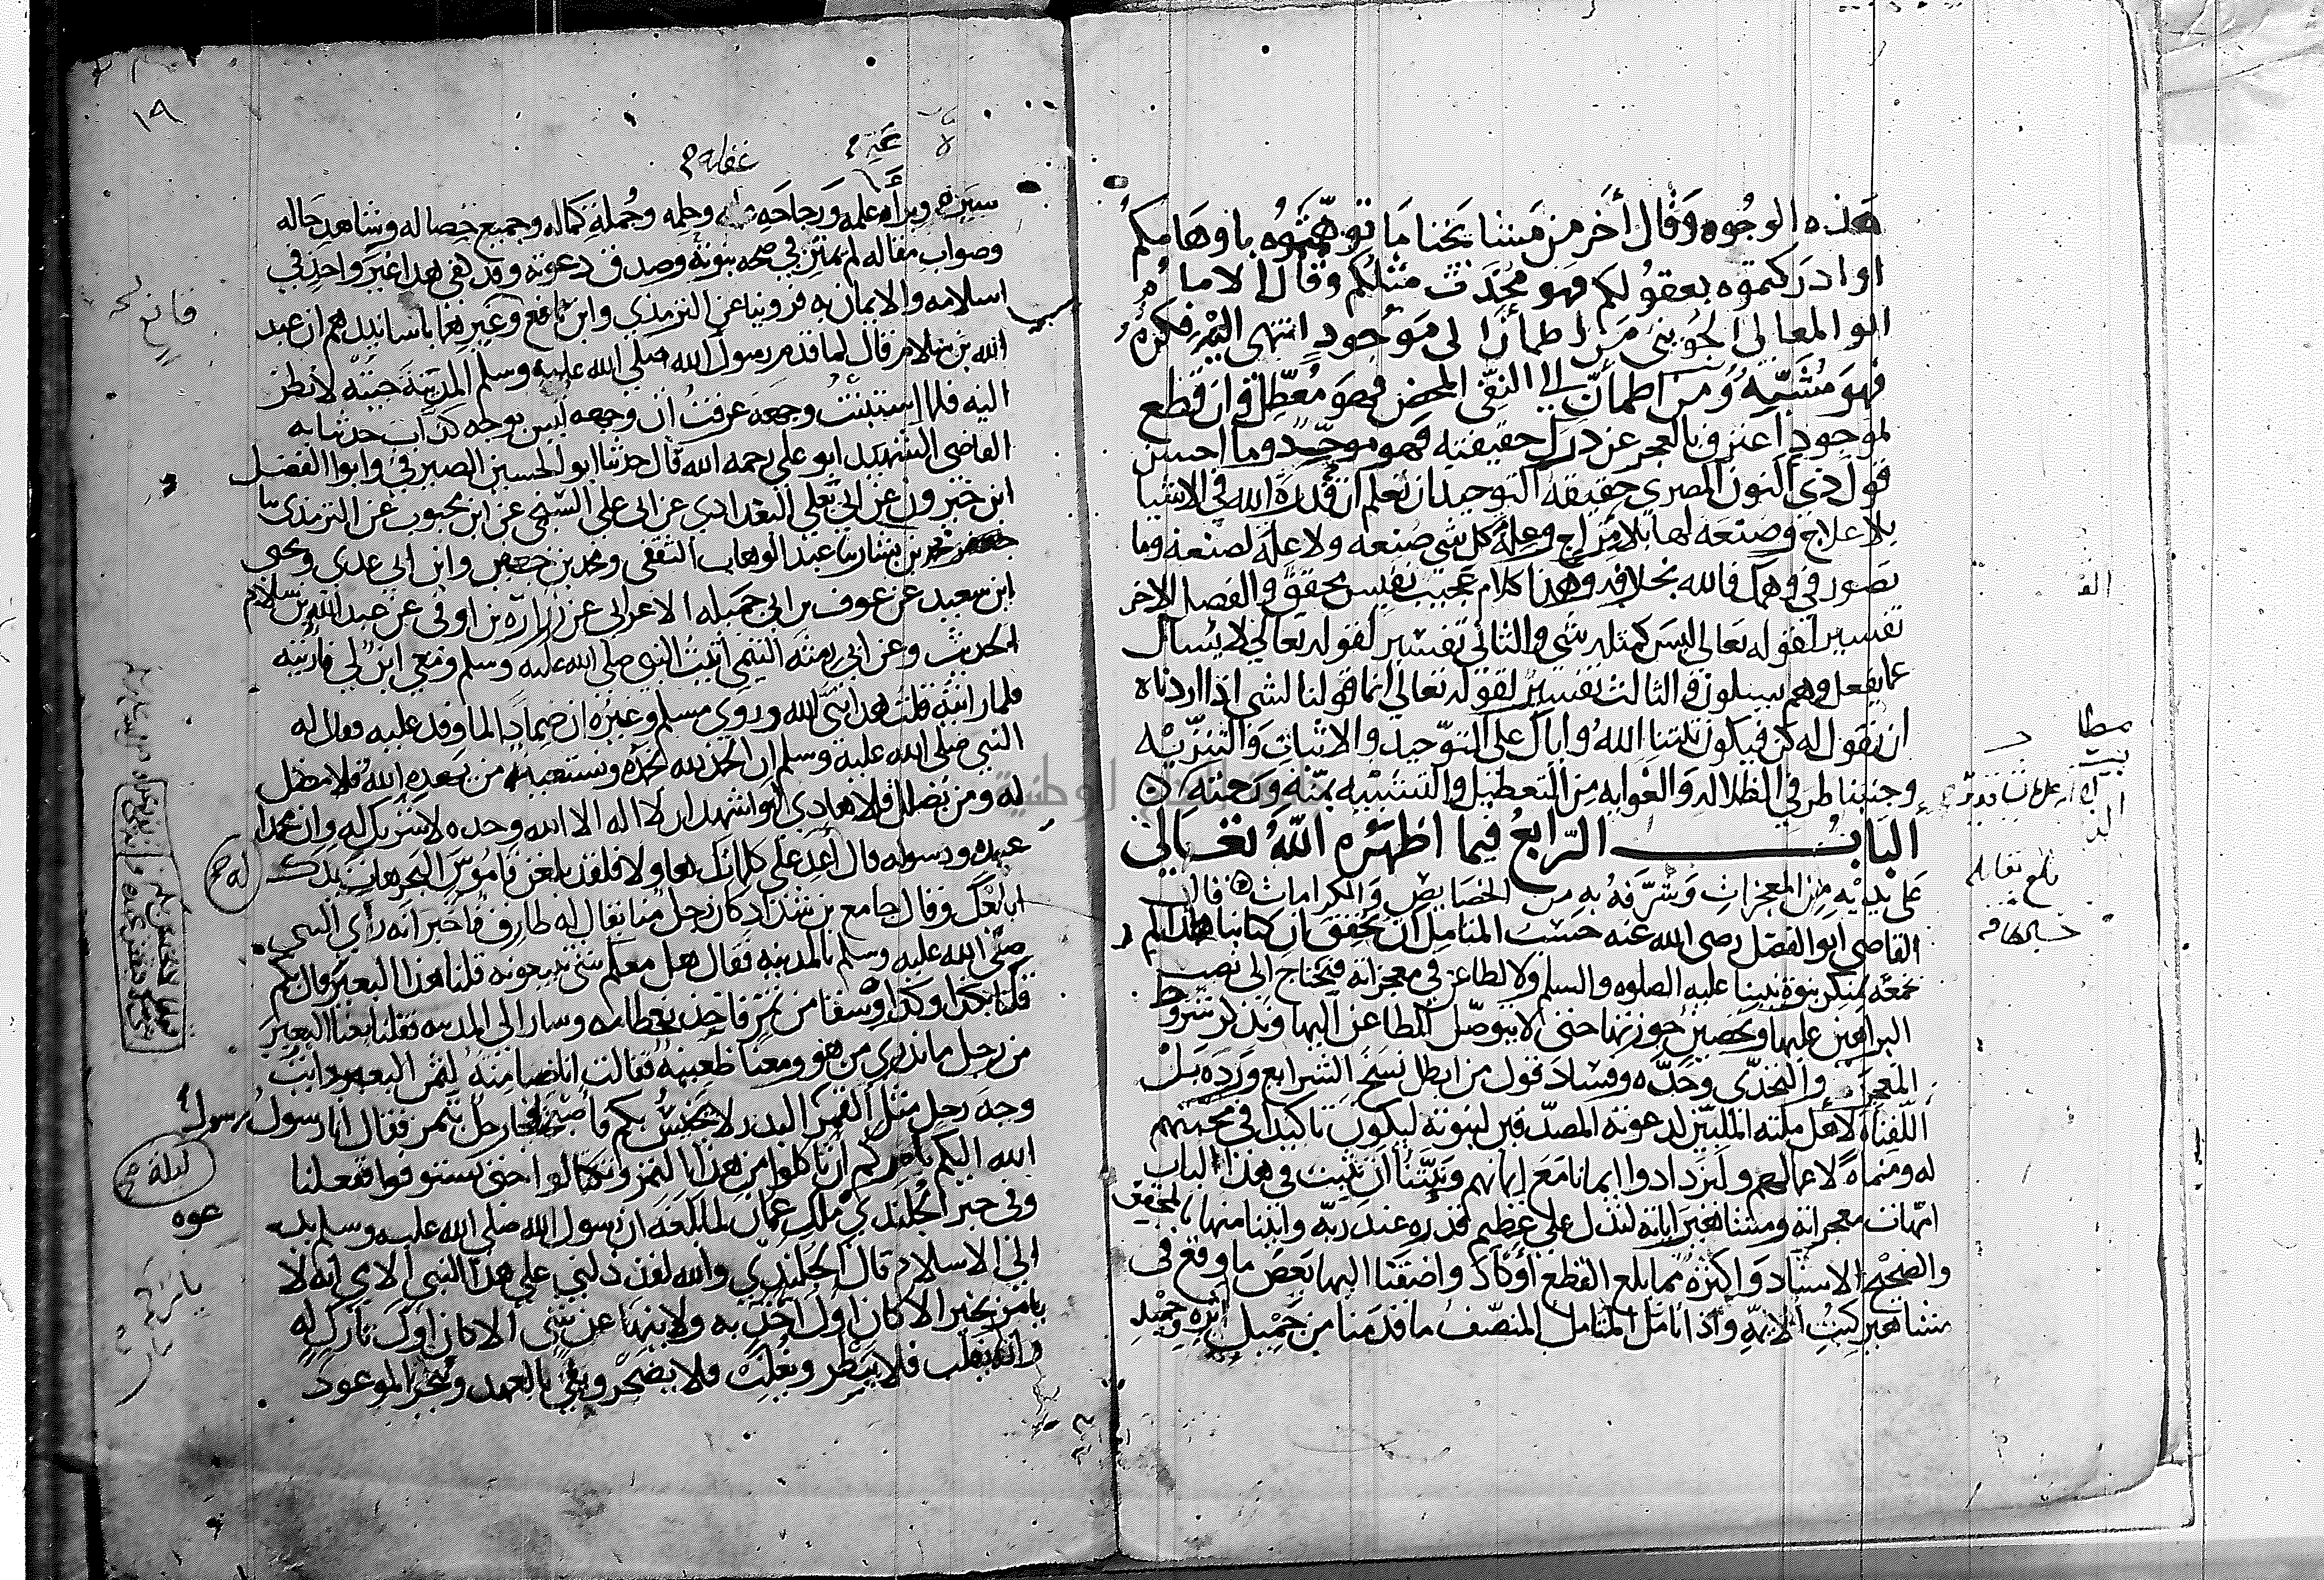 هذه الوجوه وقال أخر من مشايخنا ما توهمتموه باوهامكم
او ادركتموه بعقولكم فهو محدث مثلكم وقال الامام
ابو المعالى الجوينى من اطمأن الى موجود انتهى اليه فكره
فهو مشبه ومن اطمأن الى النفى المحض فهو معطل وان قطع
لموجود اعترف بالعجز عن درك حقيقته فهو موحد وما احسن
قول ذى النون المصرى حقيقة التوحيد ان تعلم ان قدرة الله فى الاشيا
بلا علاج وصنعه لها بلا مزاج وعلة كل شى صنعه ولا علة لصنعه وما
تصور فى وهمك فالله بخلافه وهذا كلام عجيب نفيس محقق والفصل الاخر
تفسير لقوله تعالى ليس كمثله شى والثانى تفسير لقوله تعالى لا يسال
عما يفعل وهم يسيلون والثالث تفسير لقوله تعالى انما قولنا لشى اذا اردناه
ان نقول له كن فيكون ثبتنا الله واياك على التوحيد والاثبات والتنزيه
وجنبنا طرفى الضلاله والغوايه من التعطيل والتشبيه بمنه ورحمته
الباب الرابع فيما اظهره الله تعالى
على يديه من المعجزات وشرفه به من الخصايص والكرامات قال
القاضى ابو الفضل رضى الله عنه حسب المتامل ان يحقق ان كتابنا هذا لم
نجمعه لمنكر نبوة نبينا عليه الصلوه والسلم ولا لطاعن فى معجزاته فنحتاج الى نصب
البراهين عليها وتحصين حوزتها حتى لا يتوصل المطاعن اليها ونذكر شروط
المعجز والتحدى وحده وفساد قول من ابطل نسخ الشرايع ورده بل
الفناه لاهل ملته الملبين لدعوته المصدقين لنبوته ليكون تاكيدا فى محبتهم
له ومنماة لاعمالهم وليزدادوا ايمانا مع ايمانهم ونيتنا ان نثبت فى هذا الباب
امهات معجزاته ومشاهير اياته لتدل على عظيم قدره عند ربه واتينا منها بالمحقق
والصحيح الاسناد واكثره مما بلغ القطع او كاد واضفنا اليها بعض ما وقع فى
مشاهير كتب الايمة واذا تامل المتامل المنصف ما قدمنا من جميل اثره وحميد
١٩
سيره وبراعة علمه ورجاحة عقله وحلمه وجملة كماله وجميع خصاله وشاهد حاله
وصواب مقاله لم يمتر فى صحة نبوته وصدق دعوته وقد كفى هذا غير واحد فى
اسلامه والايمان به فروينا عن الترمذى وابن قانع وغيرهما باسانيدهم ان عبد
الله بن سلام قال لما قدم رسول الله صلى الله عليه وسلم المدينة جيته لانظر
اليه فلما استبنت وجهه عرفت ان وجهه ليس بوجه كذاب حدثنا به
القاضى الشهيد ابو على رحمه الله قال حدثنا ابو الحسين الصيرفى وابو الفضل
ابن خيرون عن ابى يعلى البغدادى عن ابى على السنجى عن ابن محبوب عن الترمذى نا
بن بشار نا عبد الوهاب الثقفى ومحمد بن جعفر وابن ابى عدى ويحيى
ابن سعيد عن عوف بن ابى جميله الاعرابى عن زرارة بن اوفى عن عبد الله بن سلام
الحديث وعن ابى رمثة التيمى اتيت النبى صلى الله عليه وسلم ومعى ابن لى فاريته
فلما رايته قلت هذا نبى الله وروى مسلم وغيره ان ضمادا لما وفد عليه فقال له
النبى صلى الله عليه وسلم ان الحمد لله نحمده ونستعينه من يهده الله فلا مضل
له ومن يضلل فلا هادى له واشهد ان لا اله الا الله وحده لا شريك له وان محمدا
عبده ورسوله قال أعد على كلماتك هاولا فلقد بلغن قاموس البحر هات يدك
ابايعك وقال جامع بن شداد كان رجل منا يقال له طارق فاخبر انه راى النبى
صلى الله عليه وسلم بالمدينه فقال هل معكم شى تبيعونه قلنا هذا البعير قال بكم
قلنا بكذا وكذا وسقا من تمر فاخذ بخطامه وسار الى المدينه فقلنا بعنا البعير
من رجل ما ندرى من هو ومعنا ظعينة فقالت انا ضامنة لثمن البعير رايت
وجه رجل مثل القمر البدر لا يخيس بكم فاصبحنا فجا رجل بتمر فقال انا رسول رسول
الله اليكم يامركم ان تاكلوا من هذا التمر وتكتالوا حتى تستوفوا ففعلنا
وفى خبر الجلندى ملك عمان لما بلغه ان رسول الله صلى الله عليه وسلم يد
عوه
الى الاسلام قال الجلندى والله لقد دلنى على هذا النبى الامى انه لا
يامر بخير الا كان اول اخذ به ولا ينهى عن شى الا كان اول تارك له
وانه يغلب فلا يبطر ويغلب فلا يضجر ويفى بالعهد وينجز الموعود